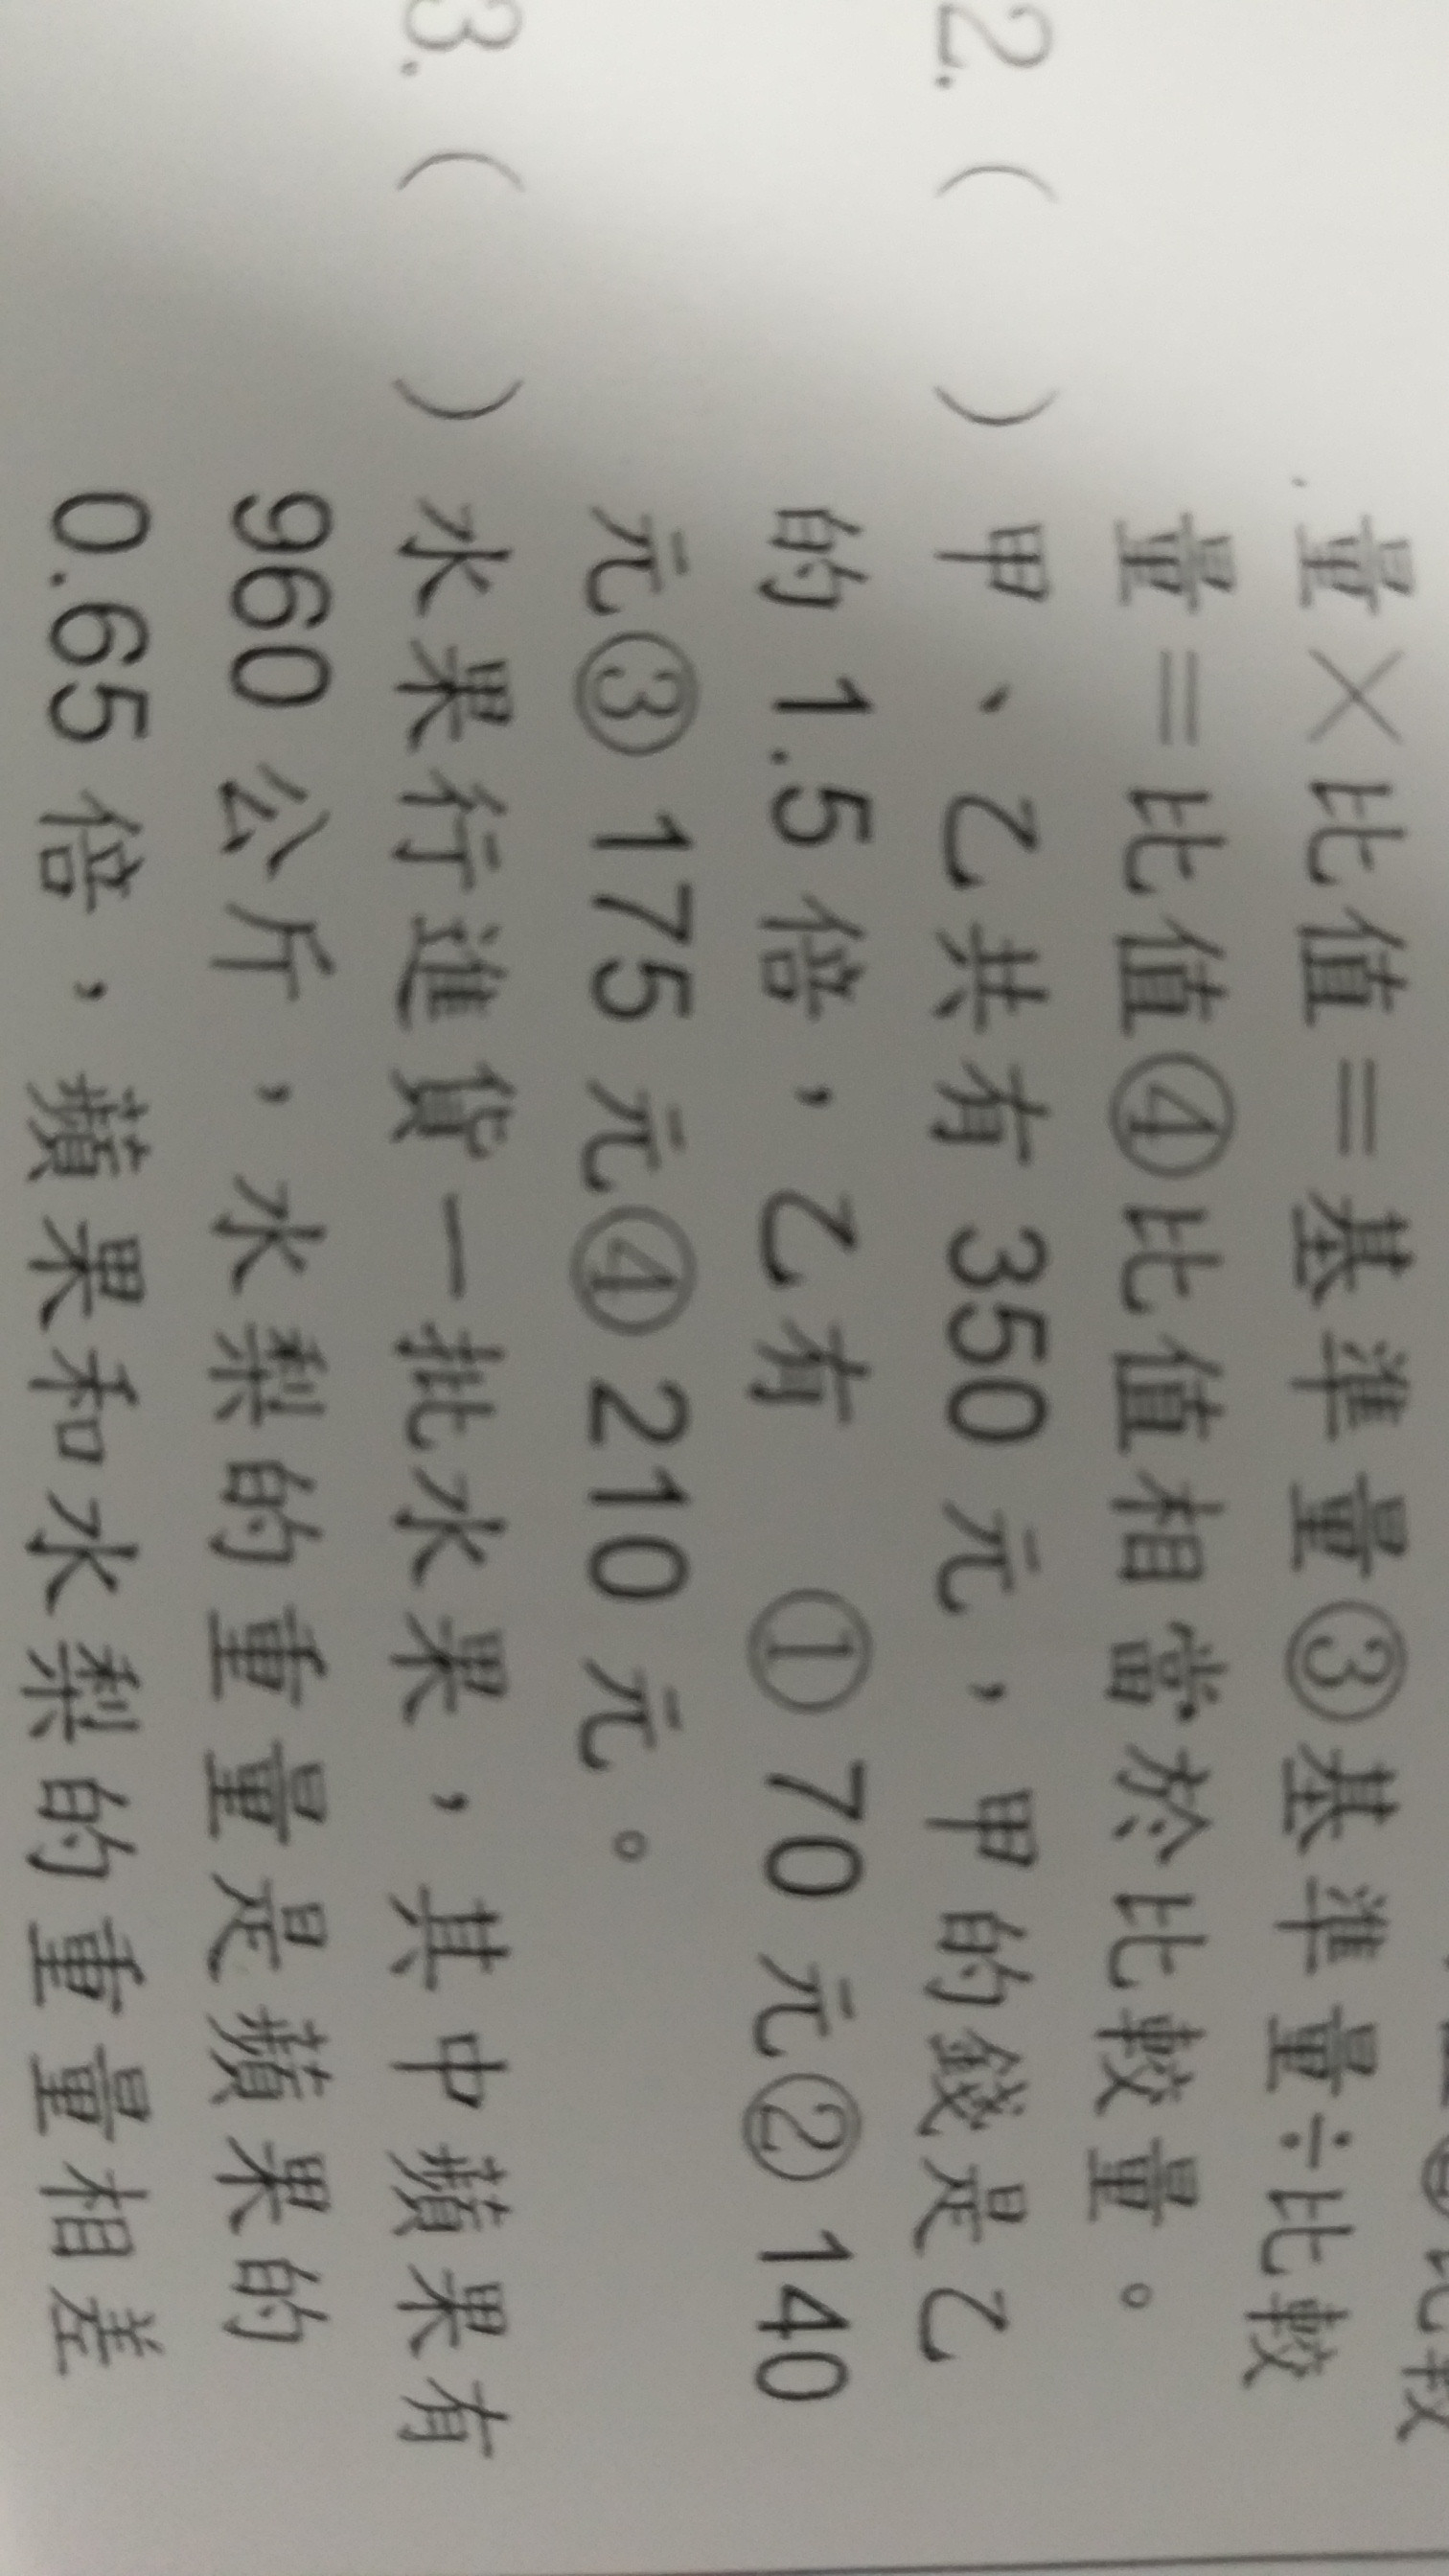 量×比值＝基準量③基準量÷比較
量＝比值④比值相當於比較量。
2.（ ）甲、乙共有 350 元，甲的錢是乙
的 1.5 倍，乙有 ① 70 元② 140
元③ 175 元④ 210 元。
3.（ ）水果行進貨一批水果，其中蘋果有
960 公斤，水梨的重量是蘋果的
0.65 倍，蘋果和水梨的重量相差